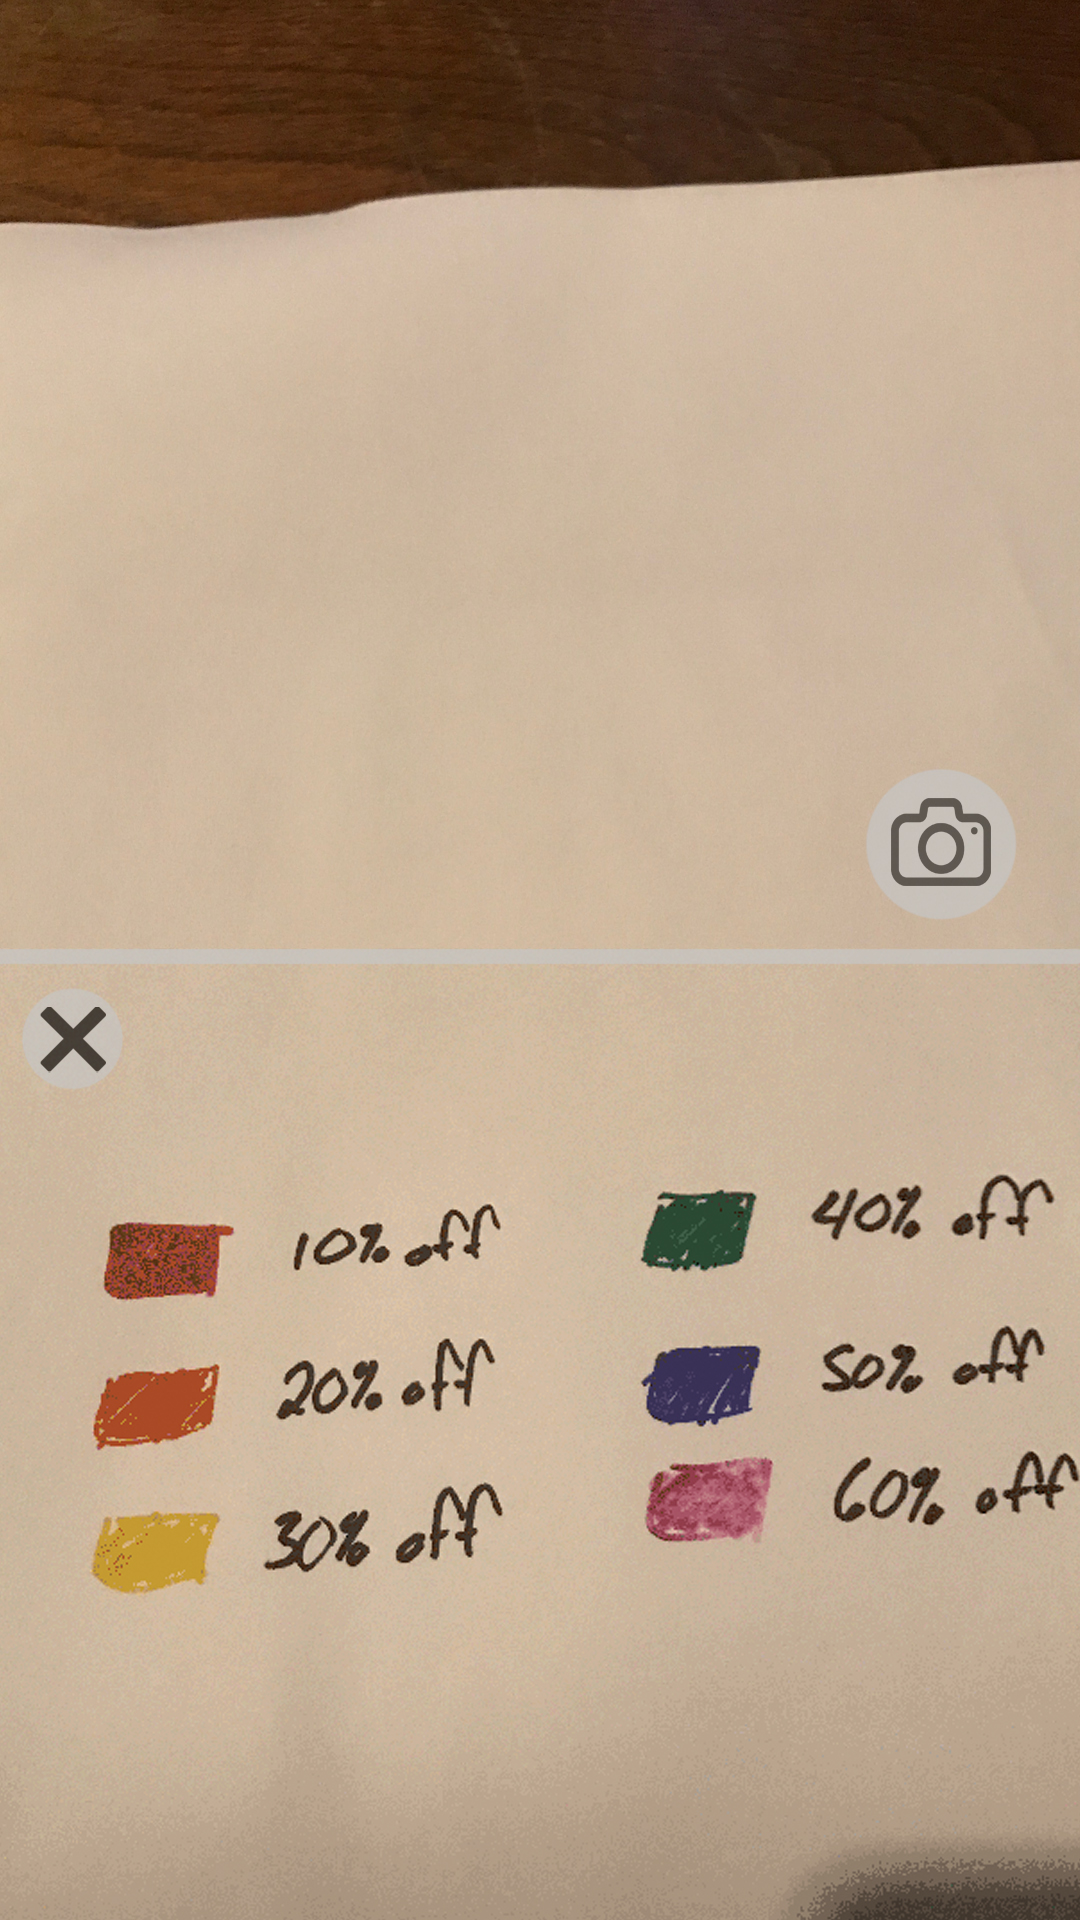 10% off
20% off
30% off
40% off
50% off
60% off